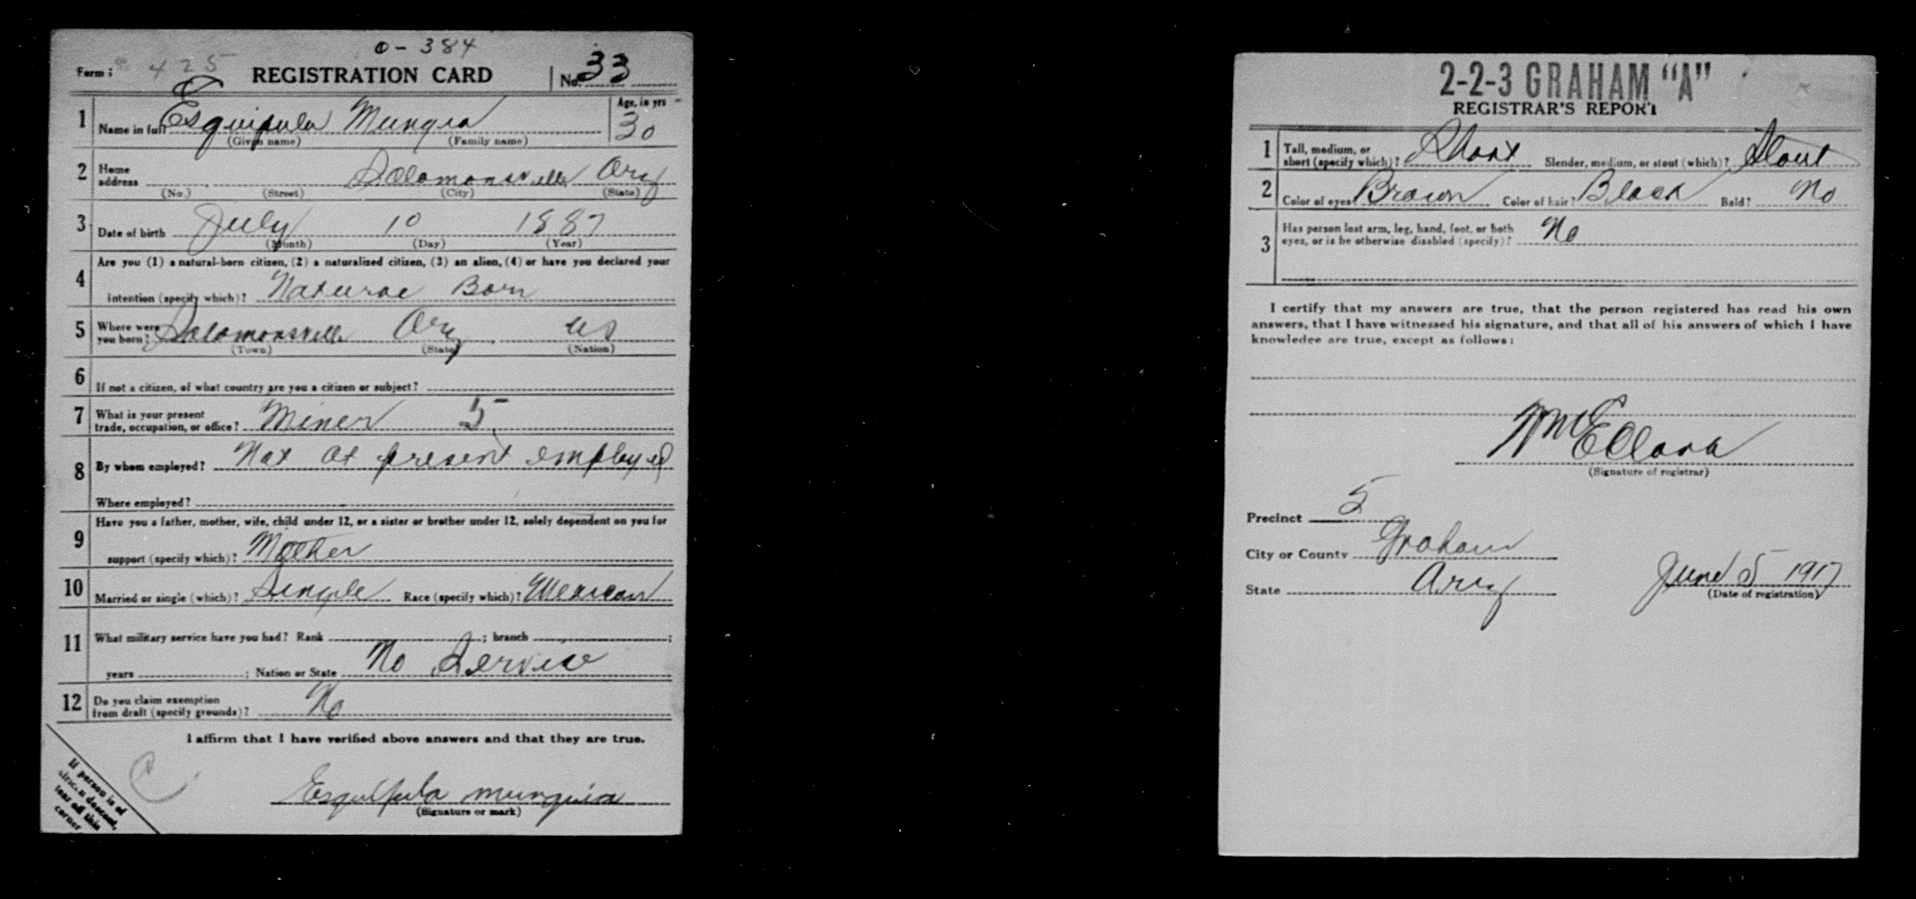 O - 384
Form 1 425 REGISTRATION CARD No. 33
1 Name in full Esquipula Mungia Age, in yrs 30
(Given name) (Family name)
2 Home address Solomonsville Ariz
(No.) (Street) (City) (State)
3 Date of birth July 10 1887
(Month) (Day) (Year)
4 Are you (1) a natural-born citizen, (2) a naturalized citizen, (3) an alien, (4) or have you declared your
intention (specify which)? Natural Born
5 Where were you born? Solomonsville Ariz US
(Town) (State) (Nation)
6 If not a citizen, of what country are you a citizen or subject?
7 What is your present
trade, occupation, or office? Miner 5
8 By whom employed? Not at present employed
Where employed?
9 Have you a father, mother, wife, child under 12, or a sister or brother under 12, solely dependent on you for
support (specify which)? Mother
10 Married or single (which)? Single Race (specify which)? Mexican
11 What military service have you had? Rank ; branch ;
years ; Nation or State No Service
12 Do you claim exemption
from draft (specify grounds)? No
I affirm that I have verified above answers and that they are true.
C
Esquipula munguia
(Signature or mark)
If person is of
African descent,
tear off this
corner
2-2-3 GRAHAM "A"
REGISTRAR'S REPORT
1 Tall, medium, or
short (specify which)? Short Slender, medium, or stout (which)? Stout
2 Color of eyes Brown Color of hair? Black Bald? No
3 Has person lost arm, leg, hand, foot, or both
eyes, or is he otherwise disabled (specify)? No
I certify that my answers are true, that the person registered has read his own
answers, that I have witnessed his signature, and that all of his answers of which I have
knowledge are true, except as follows:
Wm E Clark
(Signature of registrar)
Precinct 5
City or County Graham
State Ariz June 5 1917
(Date of registration)